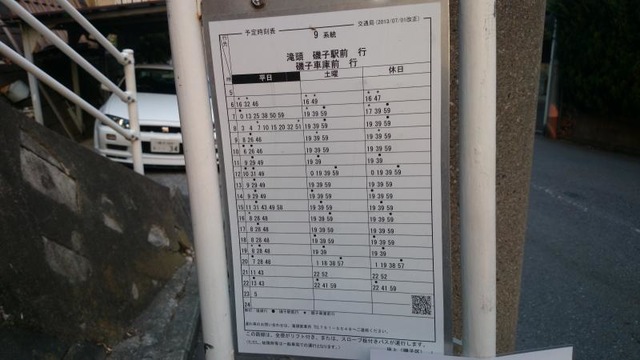 予定時刻表 9 系統 交通局 (2013/07/01改正)
滝頭 磯子駅前 行
磯子車庫前 行
平日 土曜 休日
5
6 16 32 46 16 49 16 47
7 0 13 25 38 50 59 19 39 59 17 39 59
8 3 4 7 10 15 20 32 51 19 39 59 19 39 59
9 8 26 46 19 39 59 19 39 59
10 6 26 46 19 39 59 19 39 59
11 9 29 49 19 39 19 39
12 10 31 49 0 19 39 59 0 19 39 59
13 9 29 49 19 39 59 19 39 59
14 9 29 49 19 39 59 19 39 59
15 11 31 43 49 58 19 39 59 19 39 59
16 8 28 48 19 39 59 19 39 59
17 8 28 48 19 39 59 19 39 59
18 8 28 48 19 39 59 19 39 59
19 8 28 48 19 39 19 39
20 7 28 48 1 18 38 57 1 19 38 57
21 11 43 22 52 22 52
22 13 43 22 41 59 22 41 59
23 5
24
この路線は、全便がリフト付き、または、スロープ板付きバスが運行します。